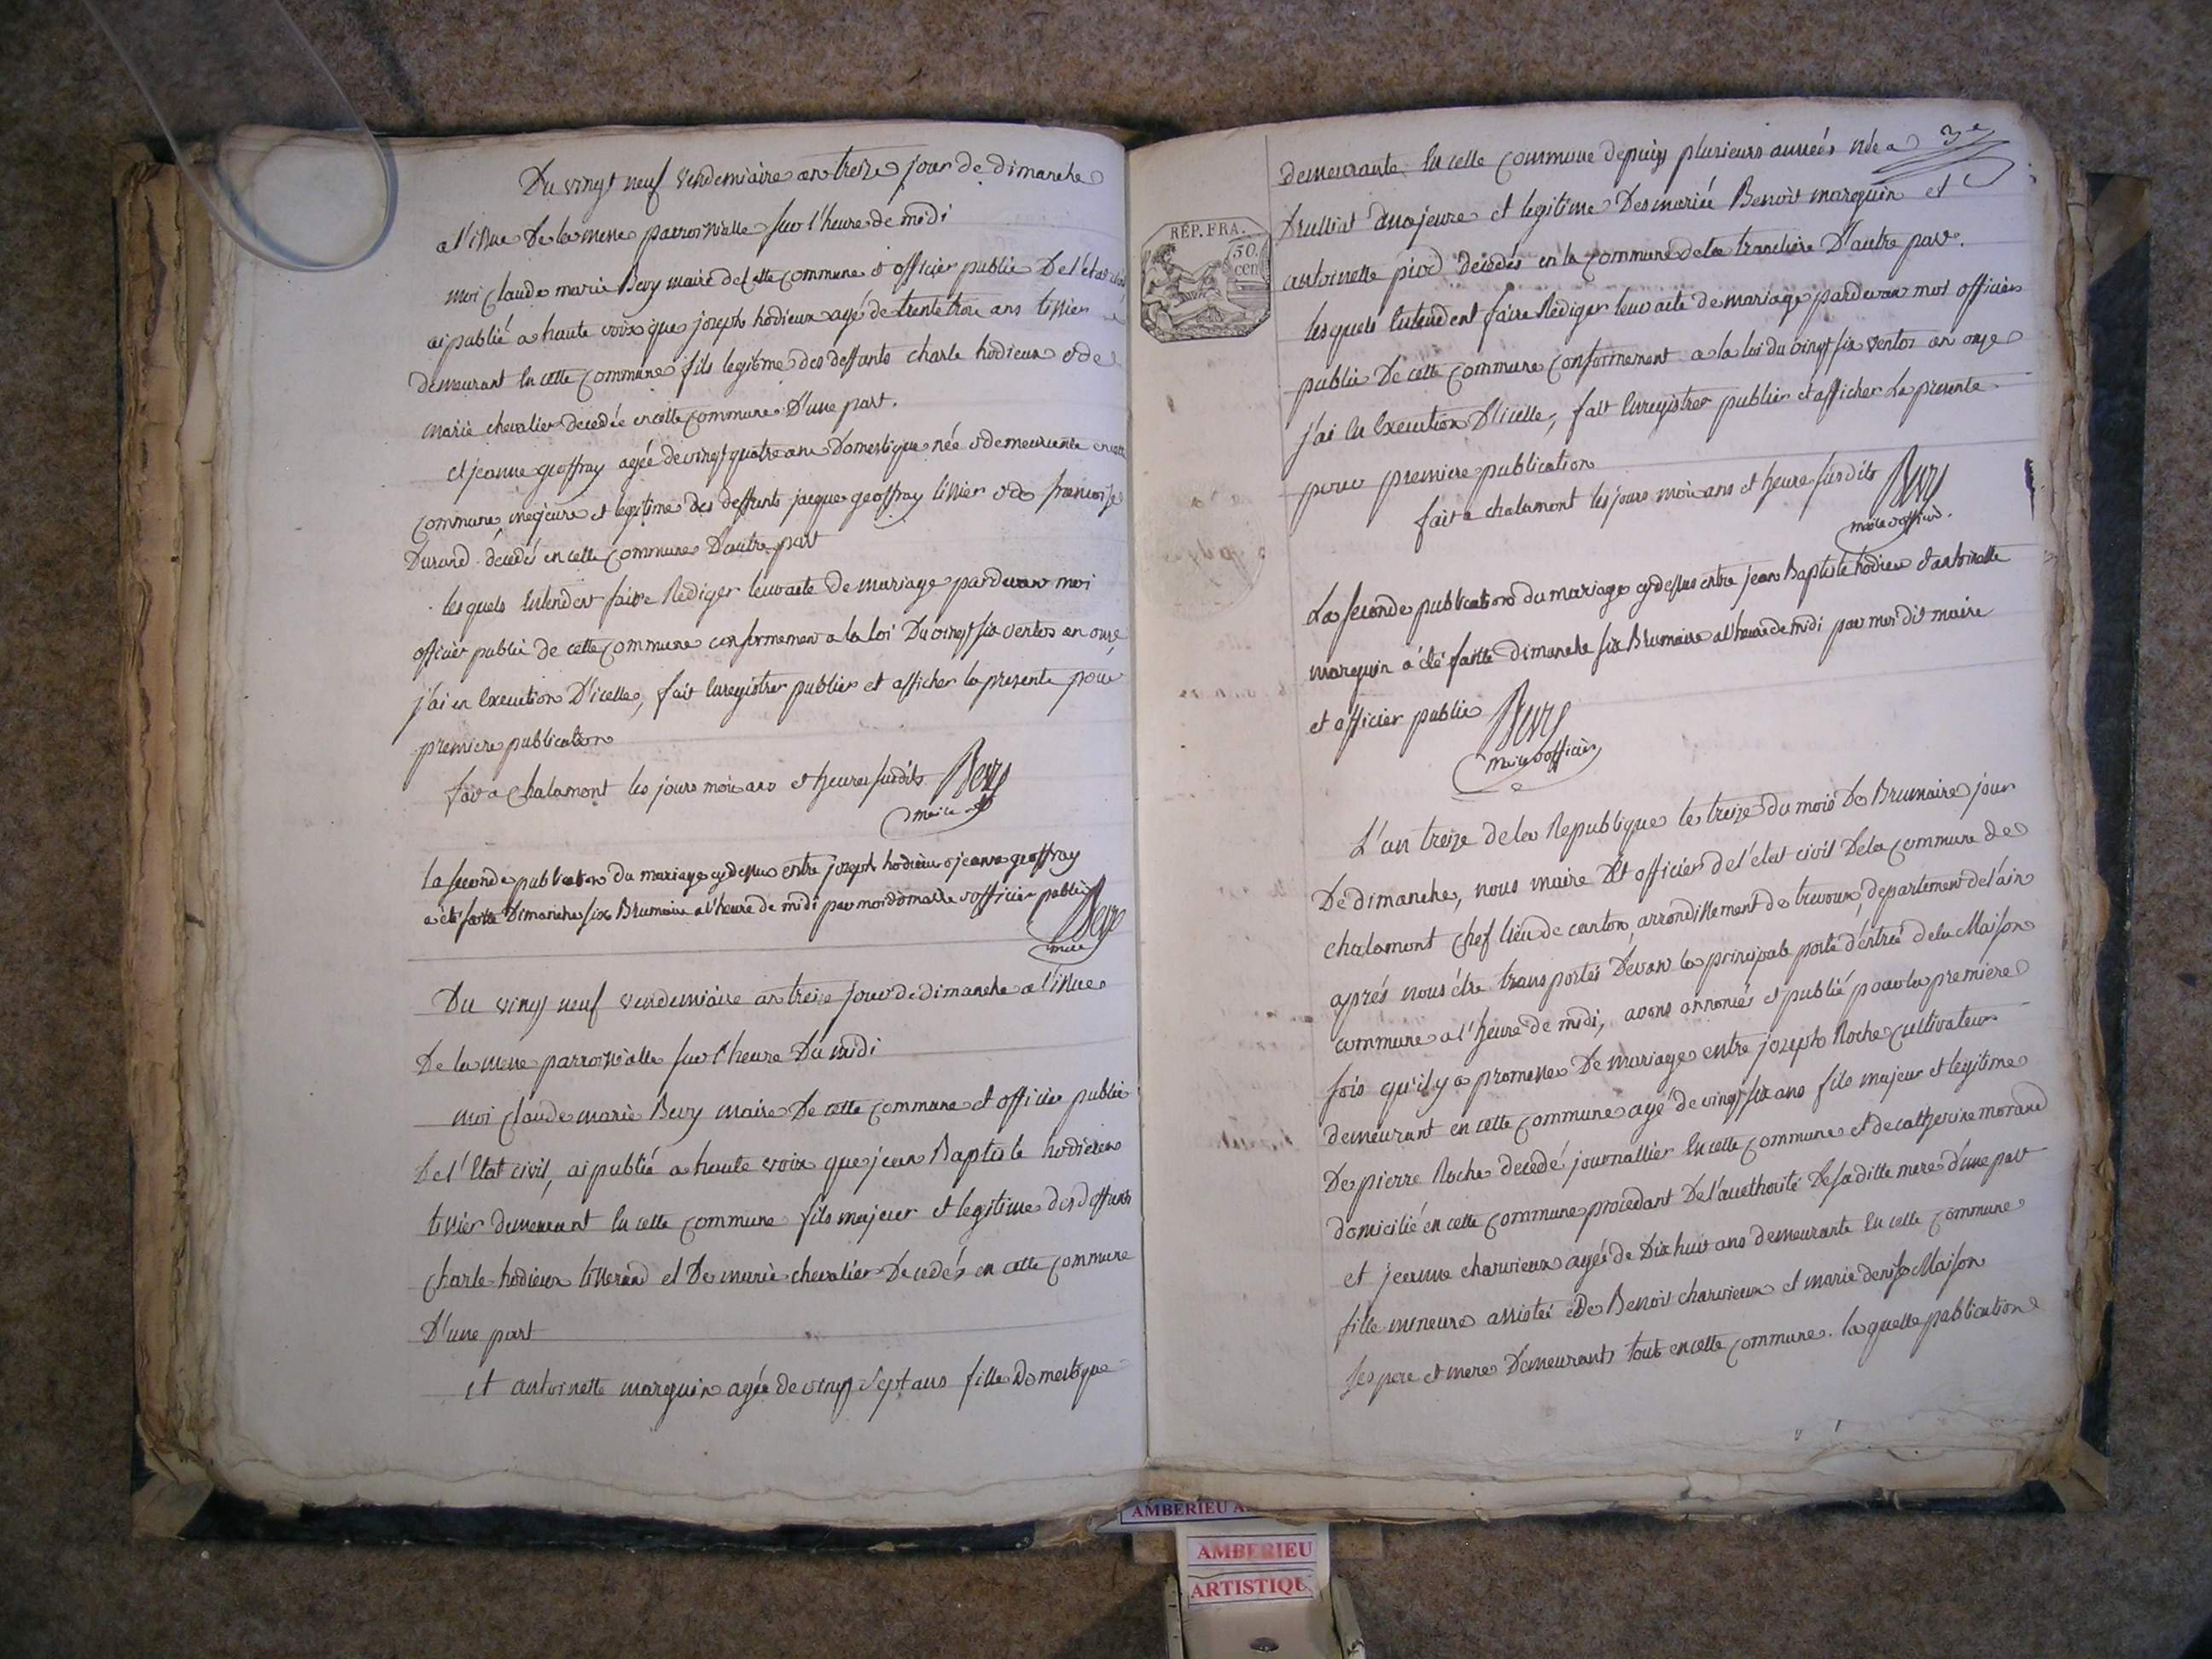 Du vingt neuf vendemiaire an treize jour de dimanche
a l'issue de la messe parroissialle sur l'heure de midi
moi claude marie Bevy maire de cette commune et officier public de l'état civil
ai publié a haute voix que joseph hodieux agé de trente trois ans tissier
demeurant en cette commune fils legitime des deffunts charle hodieux et de
marie chevalier decedée en cette commune d'une part.
et jeanne geoffray agée de vingt quatre ans domestique née et demeurante en cette
commune, majeure et legitime des deffunts jacque geoffray tissier et de francoise
Durand decedés en cette commune d'autre part
lesquels entendent faire rediger leur acte de mariage pardevant moi
officier public de cette commune conformement a la loi du vingt six ventos an onze
j'ai en execution d'icelle, fait enregistrer publier et afficher la presente pour
premiere publication
fait a chalamont les jours mois ans et heures susdits Bevy
maire
la seconde publication du mariage cy dessus entre joseph hodieux et jeanne geoffray
a été faitte dimanche six Brumaire a l'heure de midi par moi dit maire et officier public
Bevy
maire
Du vingt neuf vendemiaire an treize jour de dimanche a l'issue
de la messe parroissialle sur l'heure du midi
moi claude marie Bevy maire de cette commune et officier public
de l'etat civil, ai publié a haute voix que jean Baptiste hodieux
tissier demeurant en cette commune fils majeur et legitime des deffunts
charle hodieux tisserand et de marie chevalier decedés en cette commune
d'une part
et antoinette marguin agée de vingt sept ans fille domestique
3e
demeurante en cette commune depuis plusieurs années née a
Druillat majeure et legitime des mariés Benoit marguin et
antoinette pivod decedés en la commune de la tranclière d'autre part.
RÉP. FRA.
50.
cen
lesquels entendent faire rediger leur acte de mariage pardevant moi officier
public de cette commune conformement a la loi du vingt six ventos an onze
j'ai en execution d'icelle, fait enregistrer publier et afficher la presente
pour premiere publication
fait a chalamont les jours mois ans et heure susdits Bevy
maire et officier.
La seconde publication du mariage cy dessus entre jean Baptiste hodieux et antoinette
marguin a été faitte dimanche six Brumaire a l'heure de midi par moi dit maire
et officier public Bevy
maire et officier
L'an treize de la Republique le treize du mois de Brumaire jour
de dimanche, nous maire et officier de l'etat civil de la commune de
chalamont chef lieu de canton, arrondissement de trevoux, departement de l'ain
après nous être transportés devant la principale porte d'entrée de la Maison
commune a l'heure de midi, avons annoncés et publié pour la premiere
fois qu'il y a promesse de mariage entre joseph Roche cultivateur
demeurant en cette commune agé de vingt six ans fils majeur et legitime
de pierre Roche decedé journallier en cette commune et de catherine morand
domicilié en cette commune procedant de l'authorité de sa ditte mere d'une part
et jeanne charvieux agée de dix huit ans demeurante en cette commune
fille mineure assistée de Benoit charvieux et marie denise Maison
ses pere et mere demeurants tout en cette commune. laquelle publication
AMBERIEU A
AMBERIEU
ARTISTIQU